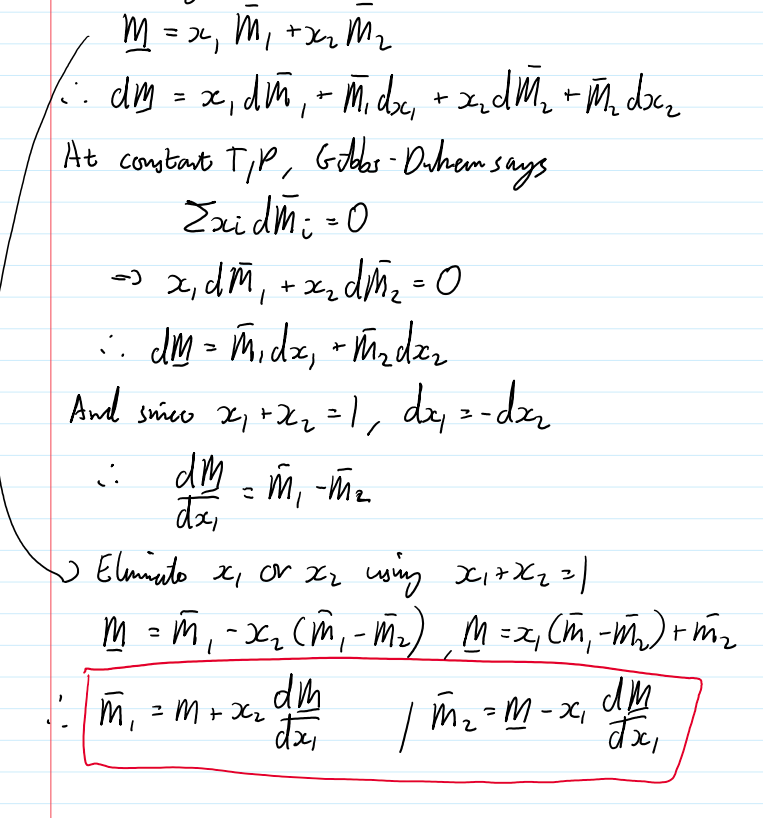 M̲ = x₁ M̄₁ + x₂ M̄₂
∴ dM̲ = x₁ dM̄₁ + M̄₁ dx₁ + x₂ dM̄₂ + M̄₂ dx₂
At constant T, P, Gibbs-Duhem says
Σxᵢ dM̄ᵢ = 0
⇒ x₁ dM̄₁ + x₂ dM̄₂ = 0
∴ dM̲ = M̄₁ dx₁ + M̄₂ dx₂
And since x₁ + x₂ = 1, dx₁ = -dx₂
∴ dM̲/dx₁ = M̄₁ - M̄₂
Eliminate x₁ or x₂ using x₁ + x₂ = 1
M̲ = M̄₁ - x₂ (M̄₁ - M̄₂), M̲ = x₁ (M̄₁ - M̄₂) + M̄₂
∴ M̄₁ = M + x₂ dM̲/dx₁ , M̄₂ = M̲ - x₁ dM̲/dx₁